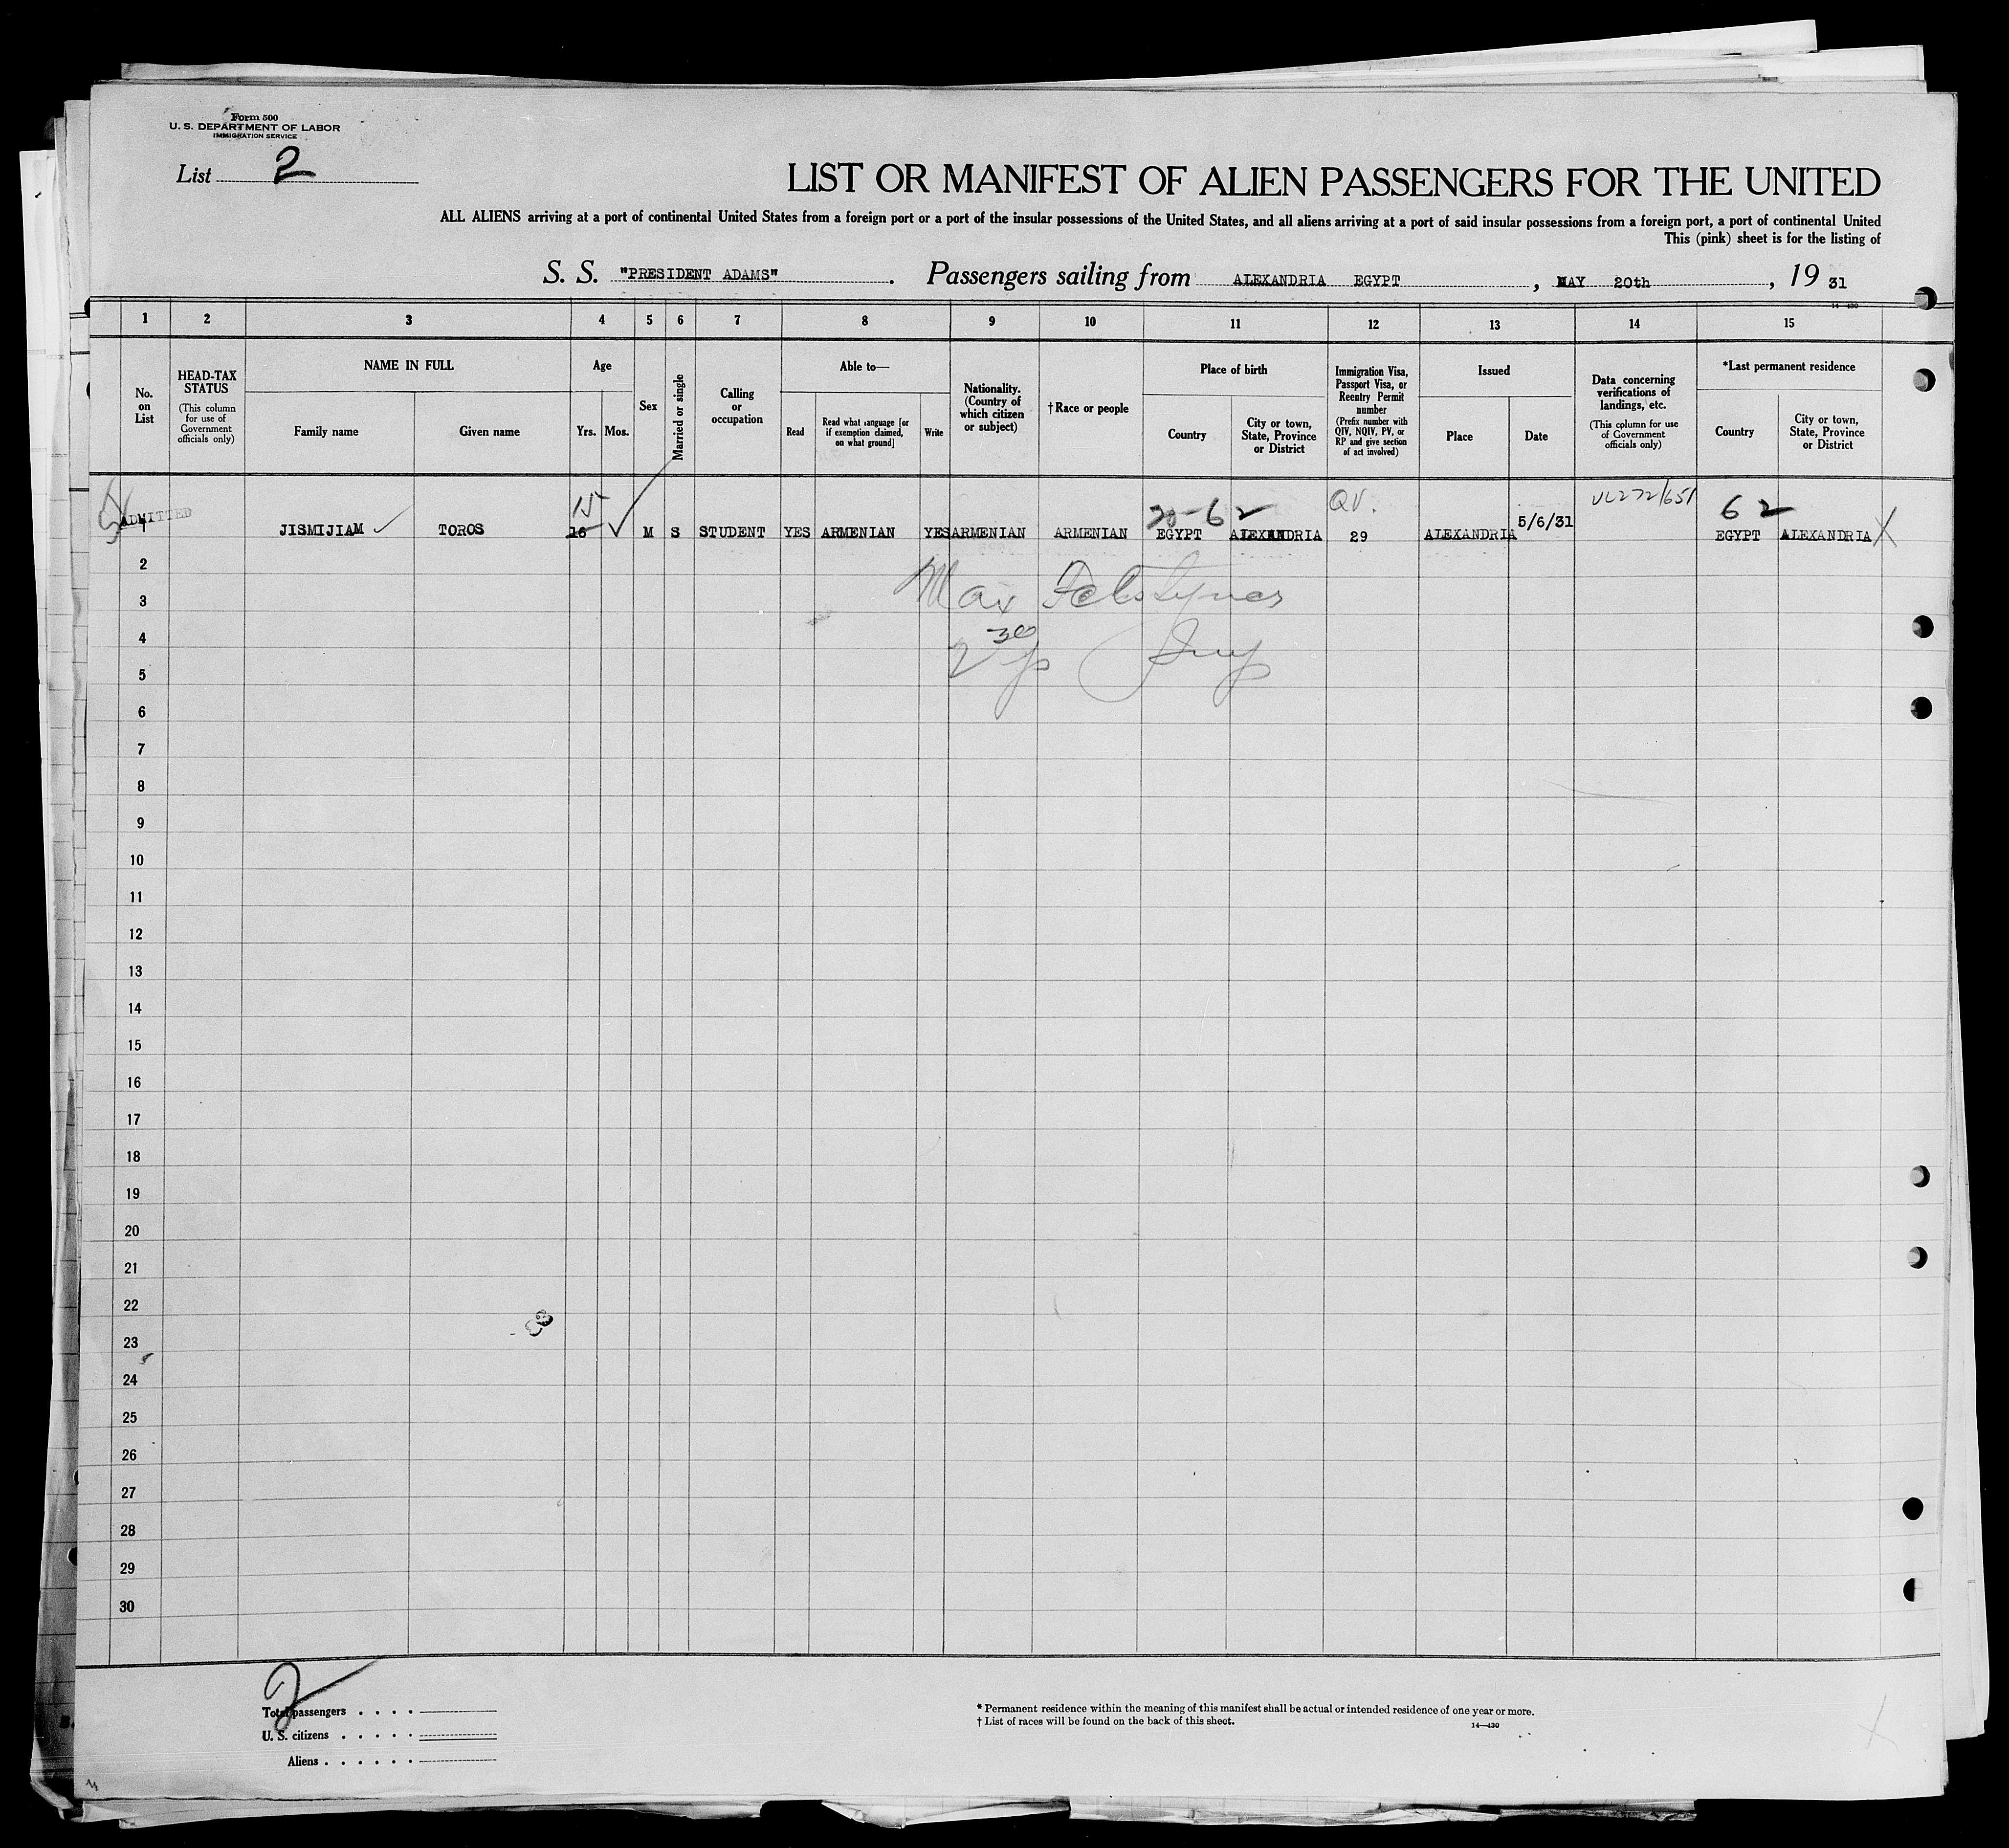 Form 500
U. S. DEPARTMENT OF LABOR
IMMIGRATION SERVICE
List 2
LIST OR MANIFEST OF ALIEN PASSENGERS FOR THE UNITED
ALL ALIENS arriving at a port of continental United States from a foreign port or a port of the insular possessions of the United States, and all aliens arriving at a port of said insular possessions from a foreign port, a port of continental United
This (pink) sheet is for the listing of
S. S. "PRESIDENT ADAMS". Passengers sailing from ALEXANDRIA EGYPT, MAY 20th, 19 31
14—430
1 2 3 4 5 6 7 8 9 10 11 12 13 14 15
No. on List
HEAD-TAX STATUS
(This column for use of Government officials only)
NAME IN FULL
Family name
Given name
Age
Yrs. Mos.
Sex
Married or single
Calling or occupation
Able to—
Read
Read what language [or if exemption claimed, on what ground]
Write
Nationality. (Country of which citizen or subject)
†Race or people
Place of birth
Country
City or town, State, Province or District
Immigration Visa, Passport Visa, or Reentry Permit number
(Prefix number with QIV, NQIV, PV, or RP and give section of act involved)
Issued
Place
Date
Data concerning verifications of landings, etc.
(This column for use of Government officials only)
*Last permanent residence
Country
City or town, State, Province or District
15 20-62 QV. 62
ADMITTED
1 JISMIJIAM TOROS 16 M S STUDENT YES ARMENIAN YES ARMENIAN ARMENIAN EGYPT ALEXANDRIA 29 ALEXANDRIA 5/6/31 EGYPT ALEXANDRIA X
2
3 Max
4 30
5
6
7
8
9
10
11
12
13
14
15
16
17
18
19
20
21
22
23
24
25
26
27
28
29
30
2
Total passengers
U. S. citizens
Aliens
* Permanent residence within the meaning of this manifest shall be actual or intended residence of one year or more.
† List of races will be found on the back of this sheet.
14—430